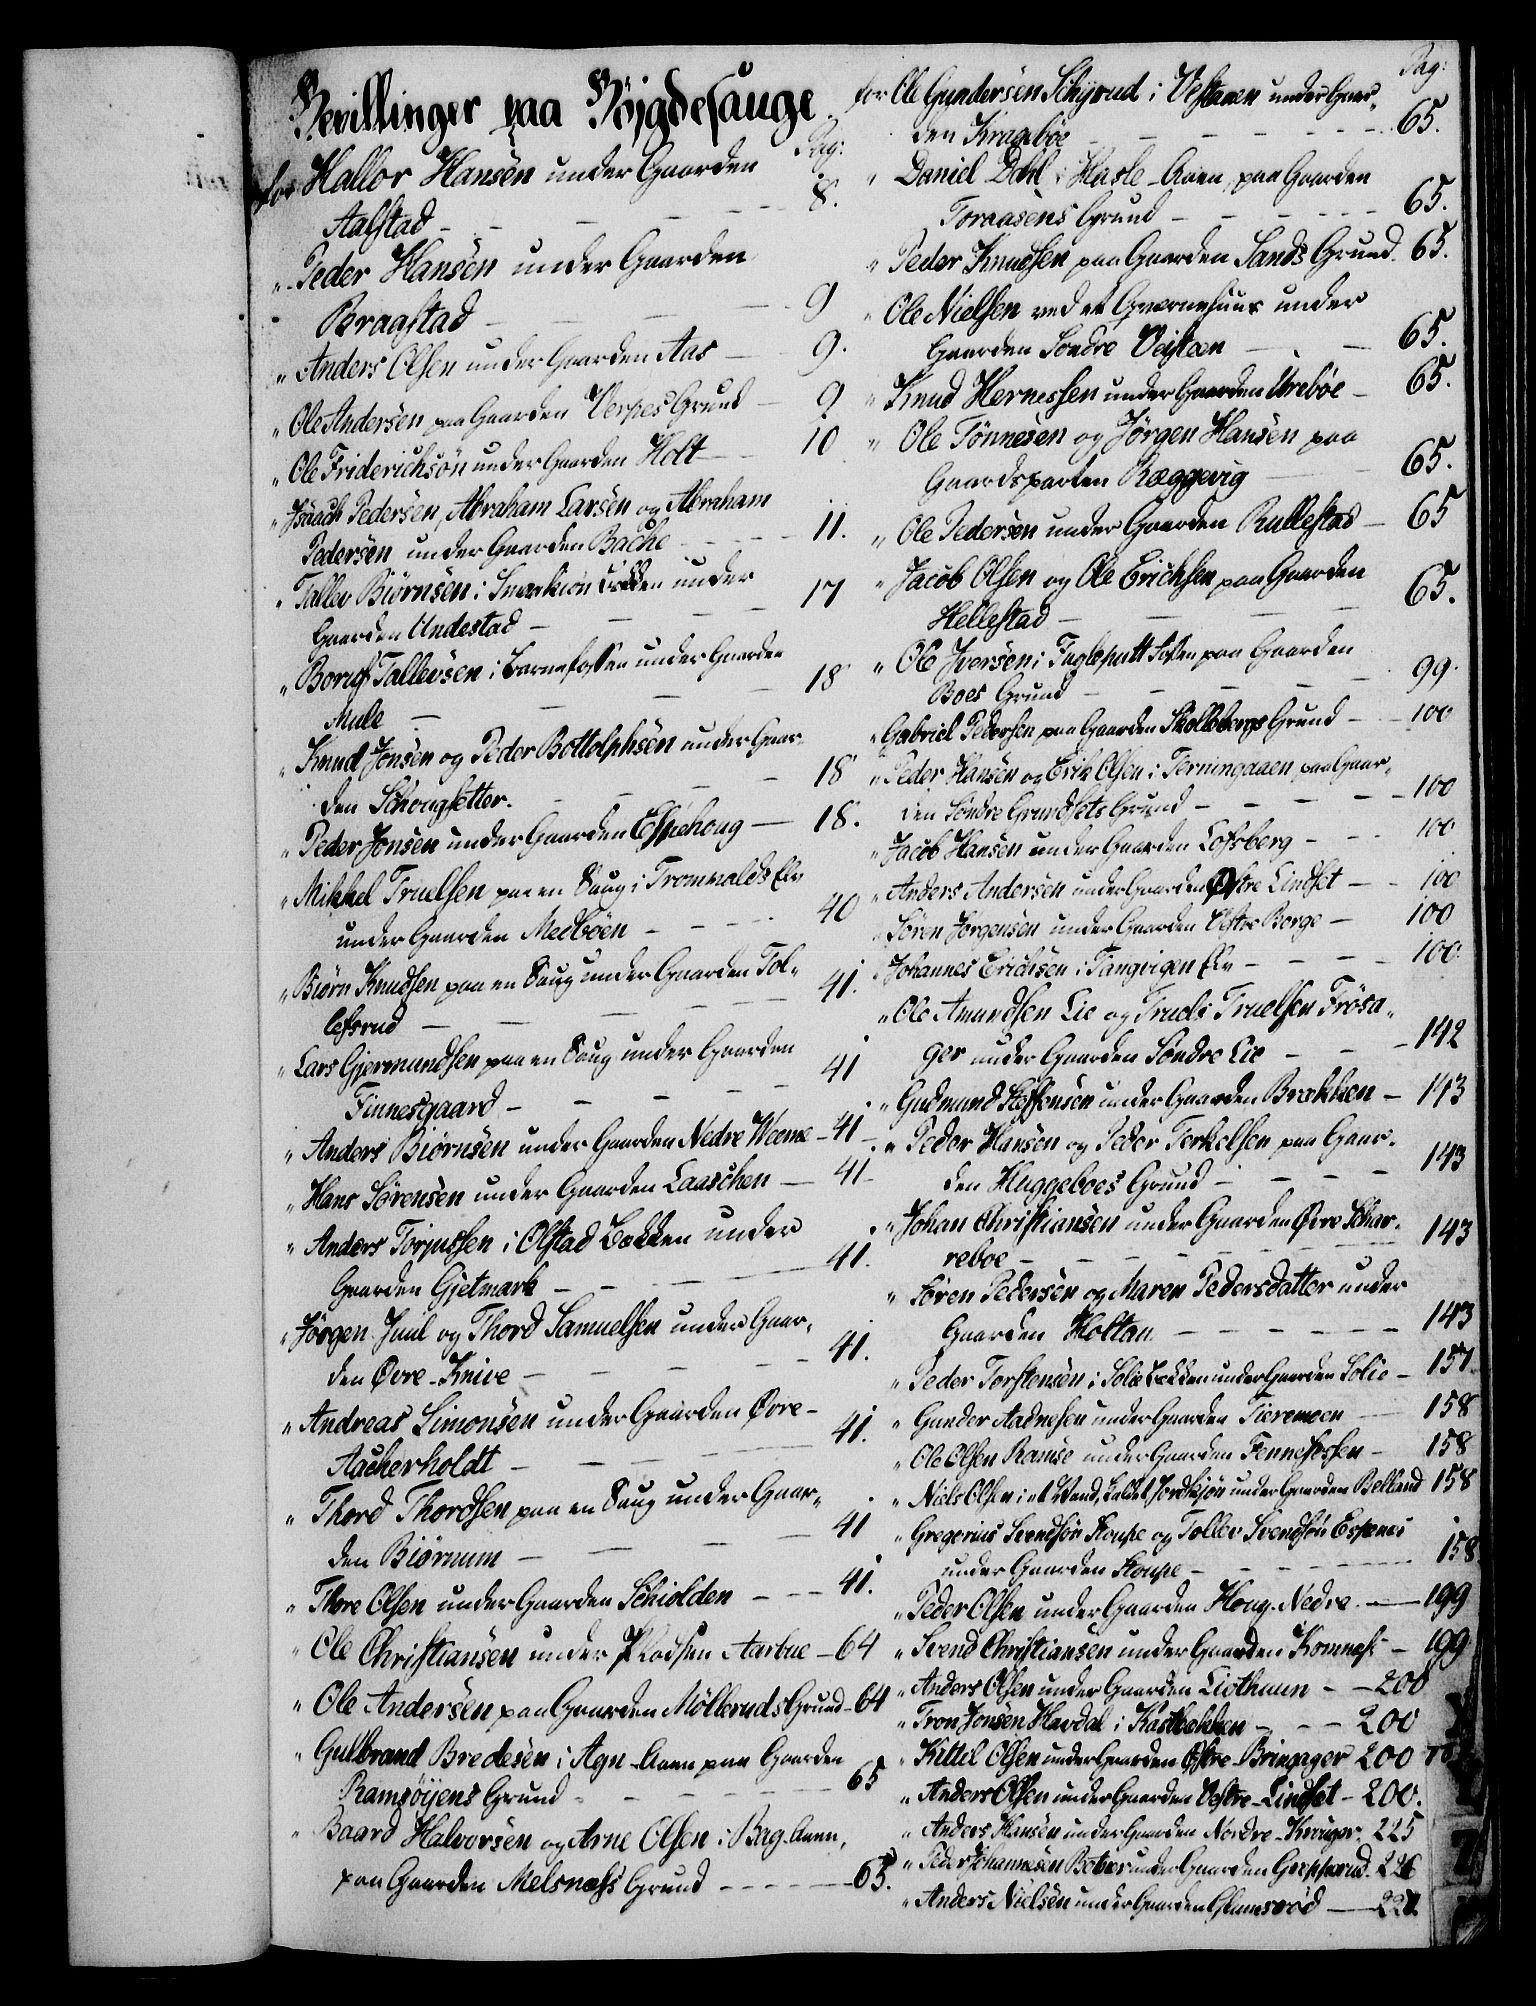 Bevillinger paa Böjgdesauge
Pag:
for Hallor Hansen under Gaarden
Aalstad - - - - 8.
" Peder Hansen under Gaarden
Bragstad - - - 9
" Anders Olsen under Gaarden Aas - 9.
" Ole Andersen paa Gaarden Verpes Grund - 9
" Ole Friderichsön under Gaarden Holt - 10
" Isaach Pedersen, Abraham Larsen og Abraham
Pedersen under Gaarden Bache - - - 11.
" Tallev Biörnsen i Bekken under
Gaarden Undestad - - - 17
" Tallevsen i under Gaarden
Mule - - - 18
" Knud Jonsen og Peder Bottolphsen under Gaar-
den Schougsetter. - - - 18
" Peder Jonsen under Gaarden Espehoug - 18.
" Mikkel Truelsen paa en Saug i Tromvalds Elv
under Gaarden Medböen - - - 40
" Biörn Knudsen paa en Saug under Gaarden Tol-
lefsrud - - - 41.
" Lars Gjermundsen paa en Saug under Gaarden
Finnesgaard - - - 41
" Anders Biörnsen under Gaarden Nedre Weeme - 41
" Hans Sörensen under Gaarden Laaschen - 41
" Anders Torjussen i Olstad Bekken under
Gaarden Gjetmark - - - 41.
" Jörgen Juul og Thord Samuelsen under Gaar-
den Øvre-Knive - - - 41.
" Andreas Simonsen under Gaarden Øvre-
Aacherholdt - - - 41.
" Thord Thordsen paa en Saug under Gaar-
den Biörnum - - - 41
" Thore Olsen under Gaarden Schiolden - - - 41.
" Ole Christiansen under Pladsen Aarbue - 64
" Ole Andersen paa Gaarden Mölleruds Grund - 64
" Gulbrand Bredesen i Agn-Aaen paa Gaarden
Ramsöyens Grund - - - 65
" Baard Halvorsen og Arne Olsen i Bag-Aaen,
paa Gaarden Melsnæs Grund - - - 65.
Pag:
for Ole Gundersen Schyrud i Vestaaen under Gaar-
den Kragebøe - - - 65.
" Daniel Dahl i Hasle-Aaen, paa Gaarden
Toraasens Grund - - - 65.
" Peder Knudsen paa Gaarden Sands Grund. 65.
" Ole Nielsen ved et Qværnehuus under
Gaarden Söndre Veisteen - - 65.
" Knud Hernessen under Gaarden Urebøe - 65.
" Ole Tönnesen og Jörgen Hansen paa
Gaardsparten Ræggevig - 65.
" Ole Pedersen under Gaarden Rullestad - 65
" Jacob Olsen og Ole Erichsen paa Gaarden
Hellestad - - - 65.
" Ole Iversen i Fugleputt paa Gaarden
Boes Grund - - - 99.
" Gabriel Pedersen paa Gaarden Skollebergs Grund - 100
" Peder Hansen og Erik Olsen i Terningaaen paa Gaar-
den Söndre Grundsets Grund - - - 100
" Jacob Hansen under Gaarden Lofsberg - - 100
" Anders Andersen under Gaarden Østre Lindset - - 100
" Sören Jörgensen under Gaarden Østre Borge - 100
" Johannes Erichsen i Tangvigen Elv - - - 100.
" Ole Amundsen Lie og Truels Truelsen Frösa-
ger under Gaarden Söndre Lie - - - 142
" Gudmund Steffensen under Gaarden Brækken - 143
" Peder Hansen og Peder Terkelsen paa Gaar-
den Huggeboes Grund - - - 143
" Johan Christiansen under Gaarden Øvre Schar-
reboe - - - 143
" Sören Pedersen og Maren Pedersdatter under
Gaarden Holtan - - - 143
" Peder Torstensen i Solie Bekken under Gaarden Solie - 157
" Gunder Aadnesen under Gaarden Tieremoen - 158
" Ole Olsen Ramse under Gaarden Fennefossen - 158
" Niels Olsen i et Vand, kaldet Jordksjön under Gaarden Belland 158
" Gregorius Svendsön Koupe og Tollev Svendsön Espenes
under Gaarden Koupe - - - 158
" Peder Olsen under Gaarden Houg-Nedre - 199
" Svend Christiansen under Gaarden Komnes - 199
" Anders Olsen under Gaarden Liethuun - - 200
" Tron Jonsen Hardal i Kastbekken - - - 200
" Kittel Olsen under Gaarden Østre-Bringager 200
" Anders Olsen under Gaarden Vestre-Lindset - 200.
" Anders Hansen under Gaarden Nordre-Krouger. 225
" Peder Johannesen Botner under Gaarden Gripperud. 226
" Anders Nielsen under Gaarden Glamsröd - 227